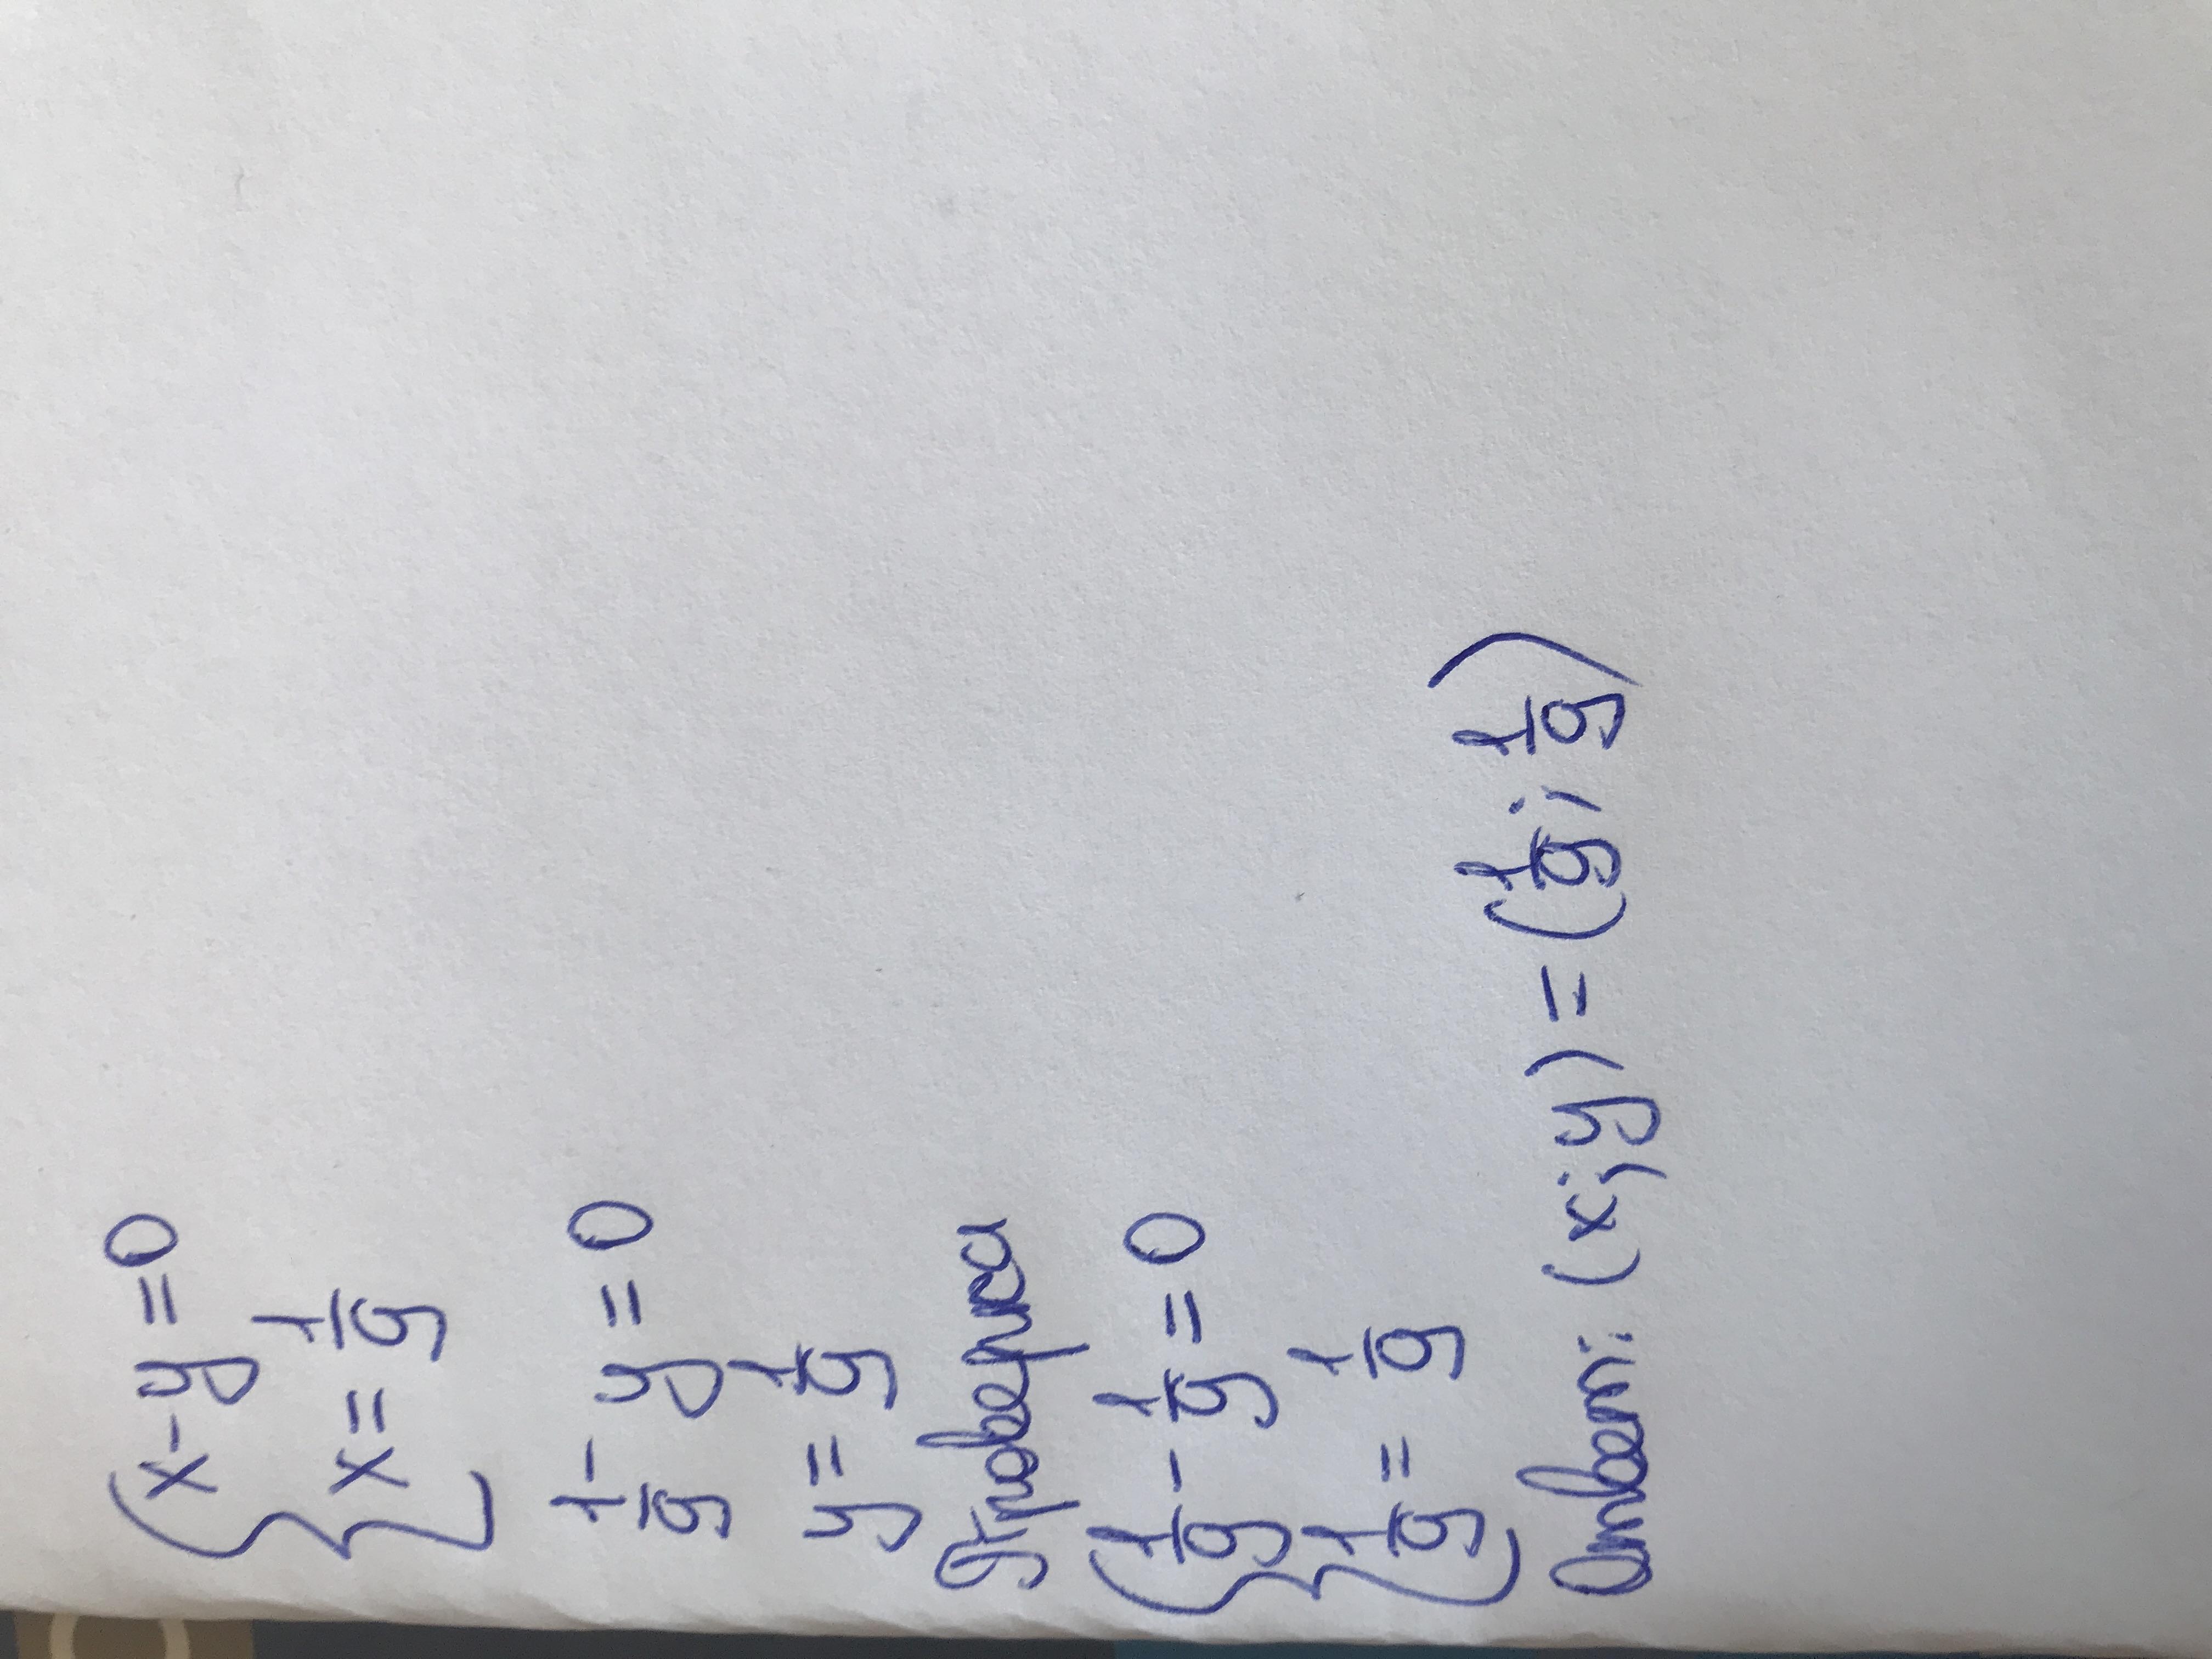 {x-y=0
x=1/9
1/9-y=0
y=1/9
Проверка
{1/9-1/9=0
1/9=1/9
Ответ: (x;y)=(1/9;1/9)